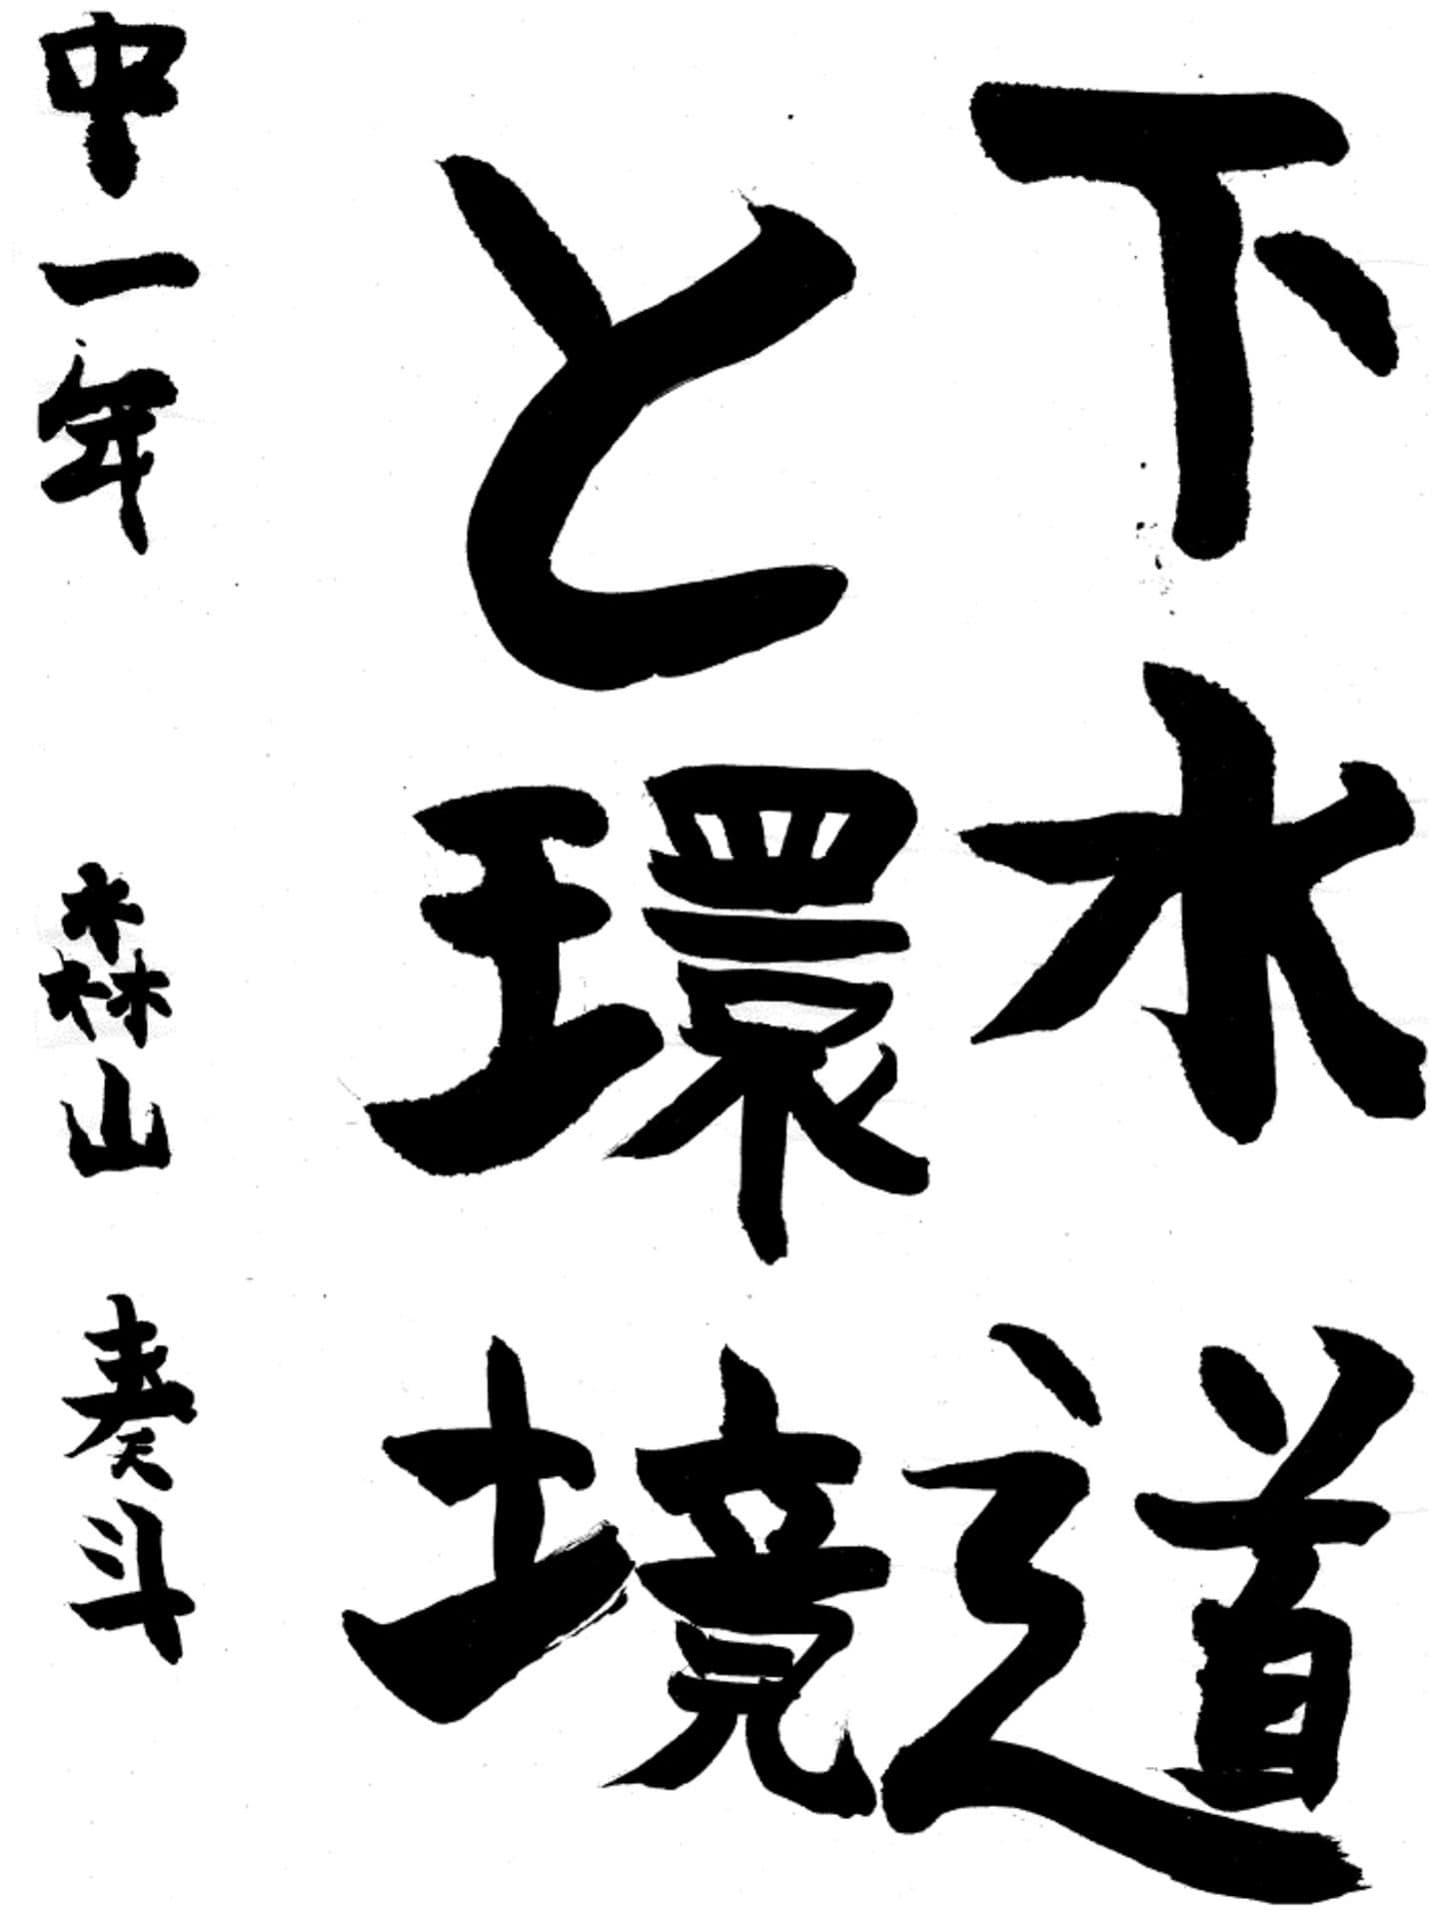 下水道
と環境
中一年 森山 奏斗